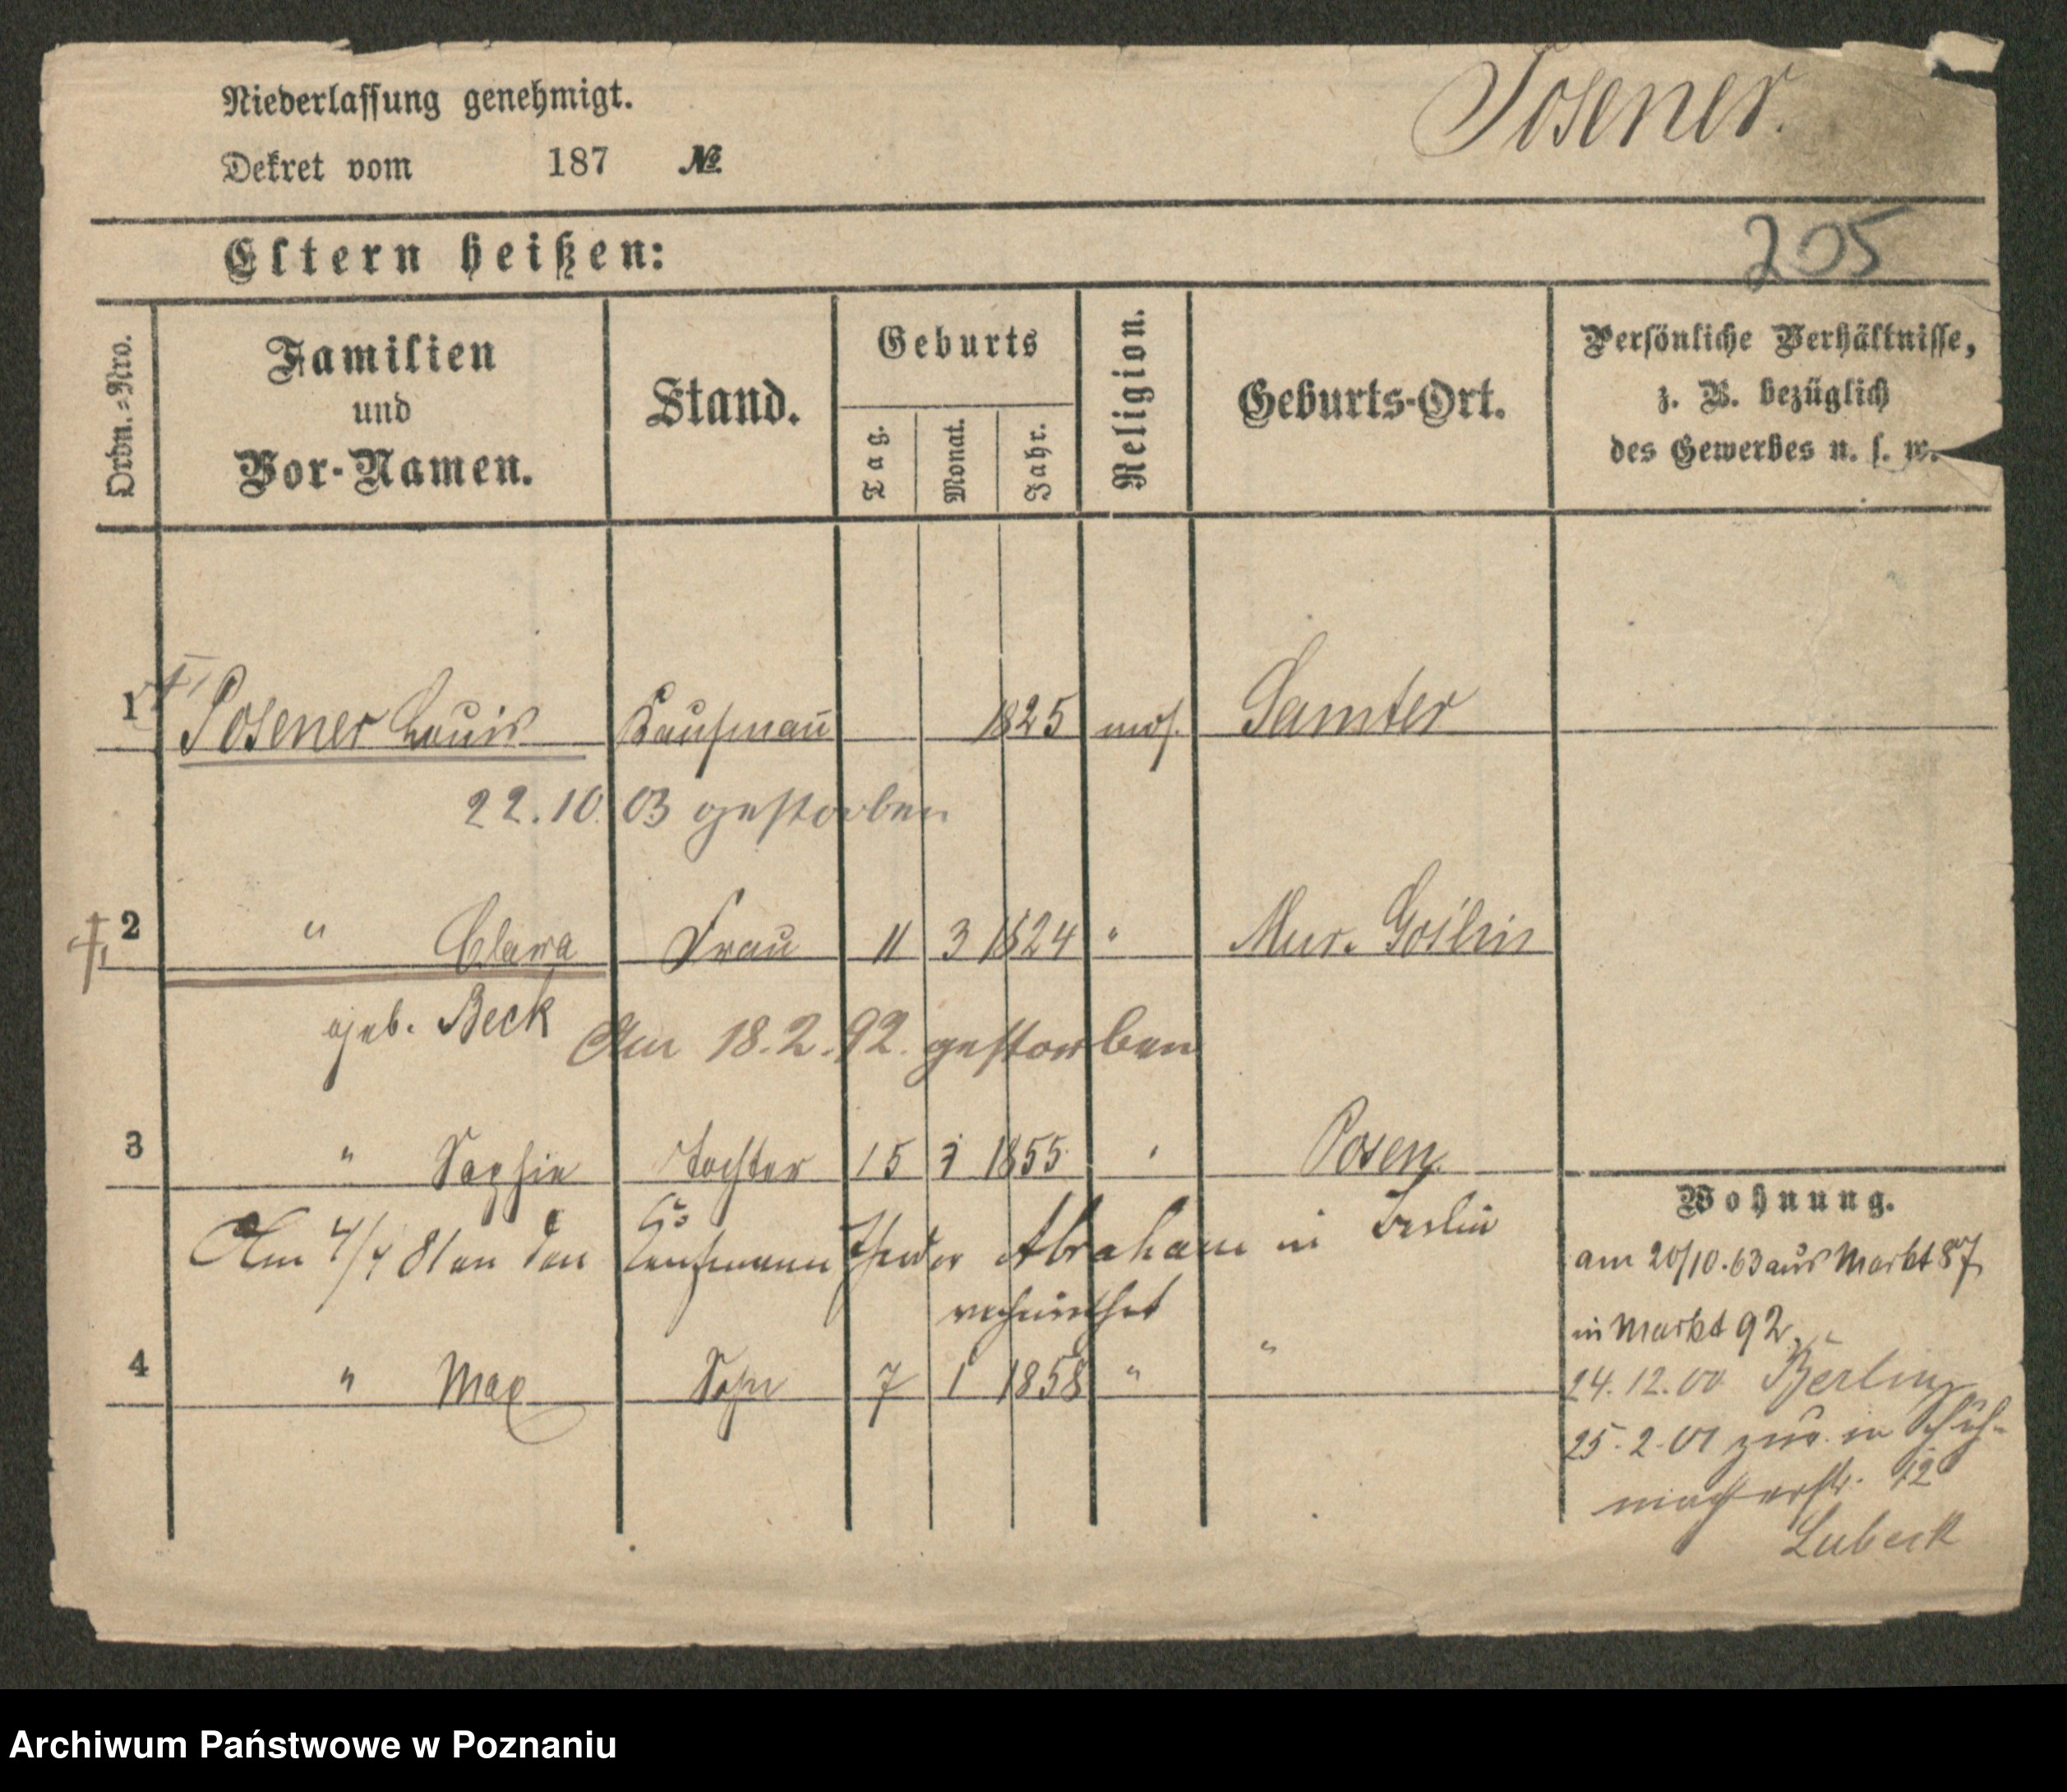 Niederlassung genehmigt.
Posener.
Dekret vom 187 №
205
Eltern heißen:
Ordn.=Nro.
Familien und Vor-Namen.
Stand.
Geburts
Tag.
Monat.
Jahr.
Religion.
Geburts-Ort.
Persönliche Verhältnisse,
z. B. bezüglich
des Gewerbes u. s. w.
1 Posener Louis Kaufmann 1825 mos. Samter
22.10.03 gestorben
2 " Clara Frau 11 3 1824 " Mur. Goslin
geb. Beck
Am 18.2.92. gestorben
3 " Sophie Tochter 15 1855 " Posen
Am 4/4 81 an den Kaufmann Abraham in Berlin
verheirathet
4 " Max Sohn 7 1 1858 " "
Wohnung.
am 20/10.63 aus Markt 87
in Markt 92.
24.12.00 Berlin
25.2.01 zur. in Schuh-
macherstr. 12
Lubeck
Archiwum Państwowe w Poznaniu